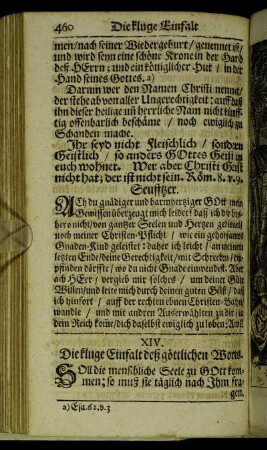 460 Die kluge Einfalt
men/ nach seiner Wiedergeburt/ genennet ist/
und wird seyn eine schöne Krone in der Hand
deß HErrn; und ein königlicher Hut/ in der
Hand seines Gottes. a)
Darum wer den Namen Christi nennet/
der stehe ab von aller Ungerechtigkeit; auff daß
ihn dieser heilige und herrliche Nam nicht künff-
tig offenbarlich beschäme/ noch ewiglich zu
Schanden mache.
Ihr seyd nicht Fleischlich/ sondern
Geistlich/ so anders GOttes Geist in
euch wohnet. Wer aber Christi Geist
nicht hat; der ist nicht sein. Röm. 8. v. 9.
Seufftzer.
ACh du gnädiger und barmhertziger GOtt mein
Gewissen überzeugt mich leider! daß ich dir biß-
hero nicht/ von gantzer Seelen und Hertzen gedienet/
noch meiner Christen-Pflicht/ wie ein gehorsames
Gnaden-Kind geleistet: daher ich leicht/ an meinem
letzten Ende/ deine Gerechtigkeit/ mit Schrecken/ em-
pfinden dörffte/ wo du nicht Gnade einwendest. Aber
ach HErr/ vergieb mir solches/ um deiner Güte
Willen/ und leite mich durch deinen guten Geist/ daß
ich hinfort/ auff der rechten ebnen Christen-Bahn
wandle/ und mit andren Auserwählten zu dir/ in
dein Reich kome/ dich daselbst ewiglich zu loben; Amen
XIV.
Die kluge Einfalt deß göttlichen Worts.
SOll die menschliche Seele zu GOtt kom-
men; so muß sie täglich nach Ihm fra-
gen.
a) Esa. 62. v. 3